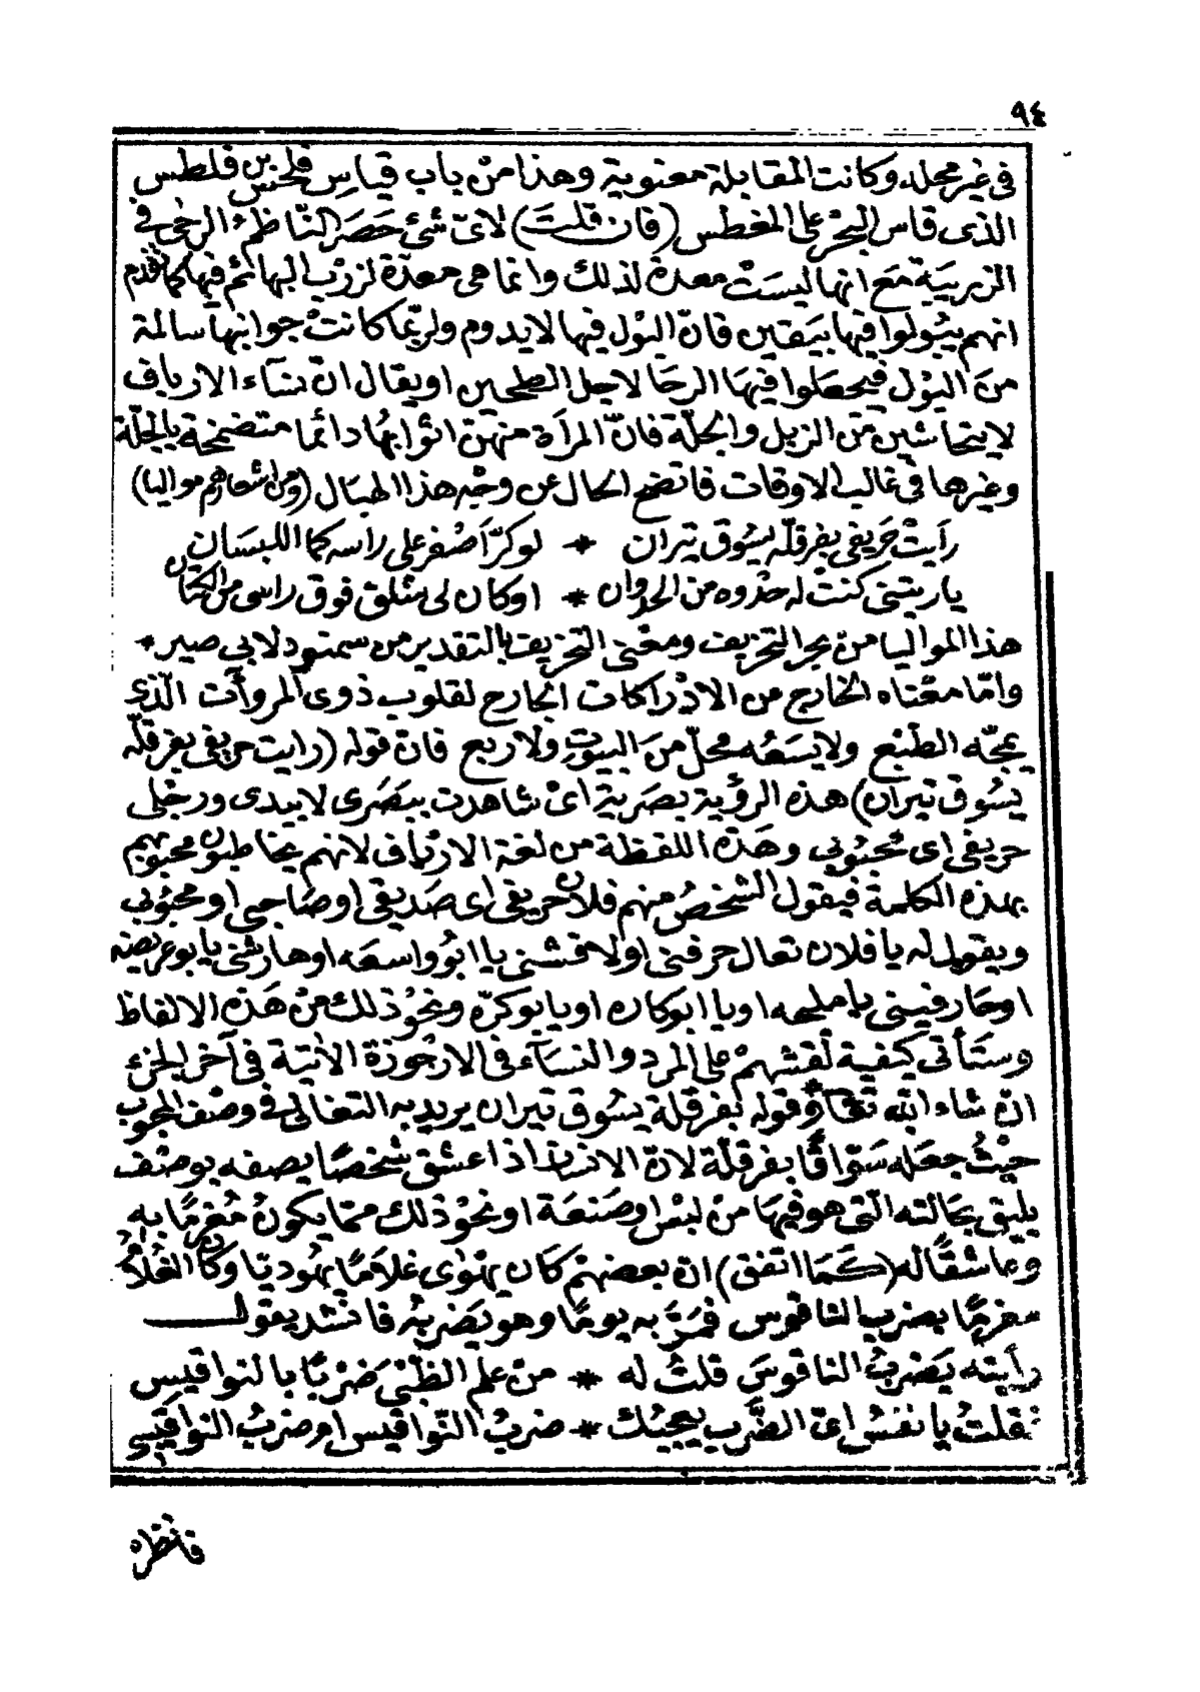 ٩٤
فى غير محله وكانت المقابلة معنوية وهذا من باب قياس فلحس بن فلطس
الذى قاس البحر على المغطس (فان قلت) لاىّ شئ حصر النّاظم الرحى فى
الزريبة مع انها ليست معدة لذلك وانما هى معدّة لزرب البهائم فيها كما تقدم
انهم يبولوا فيها بيقين فانّ البول فيها لا يدوم ولربّما كانت جوانبها سالمة
من البول فيجعلوا فيها الرحا لاجل الطحين او يقال ان نساء الارياف
لا يتحاشين من الزبل والجلّة فانّ المرأة منهن اثوابها دائما متضمخة بالجلّة
وغيرها فى غالب الاوقات فاتضح الحال عن وجه هذا الهبال (ومن اشعارهم مواليا)
رأيت حريفى بفرقلّه يسوق تيران * لو كرّ أصفر على راسه كما اللبسان
ياريتنى كنت له حدوه من الحدوان * او كان لى شلق فوق راسى من الكتان
هذا المواليا من بحر التخزيف ومعنى التخزيف بالتقدير من سمنود لابى صير *
وامّا معناه الخارج من الادراكات الجارح لقلوب ذوى المروآت الّذى
يمجّه الطبع ولا يسعه محلّ من البيوت ولا ربع فان قوله (رايت حريفى بفرقلّه
يسوق تيران) هذه الرؤية بصرية اى شاهدت ببصرى لا بيدى ورجلى
حريفى اى محبوبى وهذه اللفظة من لغة الارياف لانهم يخاطبون محبوبهم
بهذه الكلمة فيقول الشخص منهم فلان حريفى اى صديقى او صاحبى او محبوبى
ويقول له يا فلان تعال حرفنى او لاقشنى يا ابو واسعه او هارشنى يابو عريضه
او حارفينى يا مليحه او يا ابو كاره او يابو كرّه ونحو ذلك من هذه الالفاظ
وستأتى كيفية لقشهم على المرد والنساء فى الارجوزة الآتية فى آخر الجزء
ان شاء الله تعالى * وقوله بفرقلة يسوق تيران يريد به التغالى فى وصف المحبوب
حيث جعله سوّاقا بفرقلّة لانّ الانسان اذا عشق شخصا يصفه بوصف
يليق بحالته الّتى هو فيها من لبس او صنعة او نحو ذلك ممّا يكون مغرما به
وعاشقا له (كما اتفق) ان بعضهم كان يهوى غلاما يهوديّا وكان الغلام
مغرما بضرب الناقوس فمرّ به يوما وهو يضربه فانشد يقول
رأيته يضرب الناقوس قلت له * من علّم الظبى ضربا بالنواقيس
فقلت يا نفس اىّ الضّرب يعجبك * ضرب النّواقيس ام ضرب النوا قيسى
فانظره